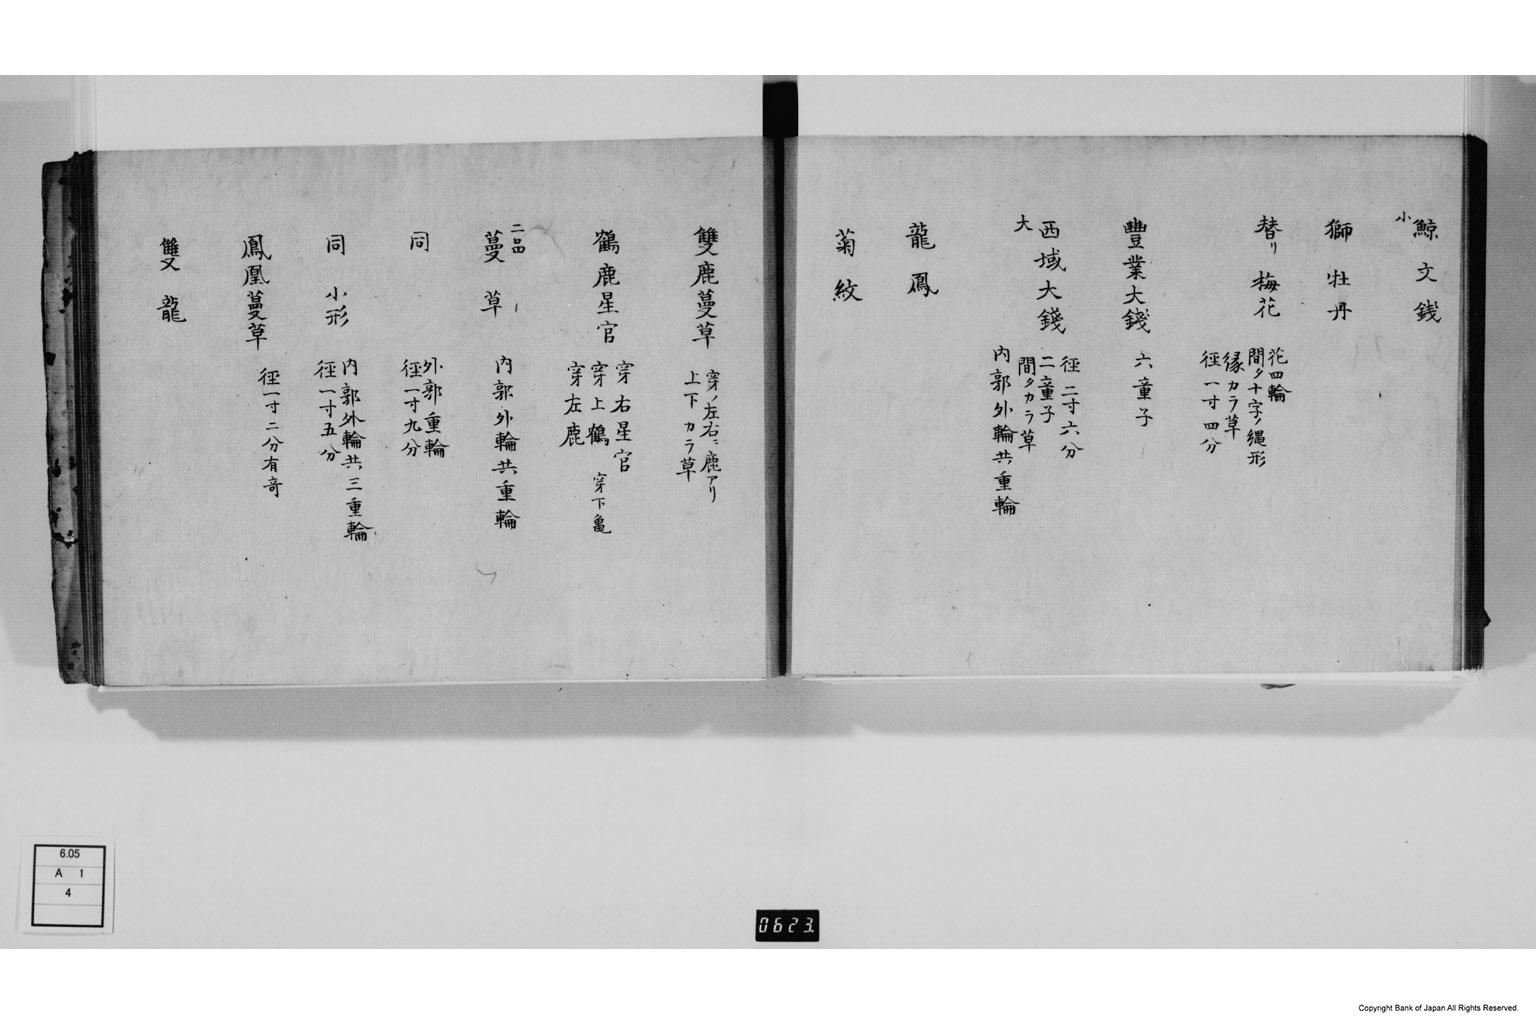 小
鯨文銭
獅牡丹
替リ梅花
花四輪
間タ十字ノ縄形
縁カラ草
徑一寸四分
豐業大錢
六童子
大
西域大錢
徑二寸六分
二童子
間タカラ草
内郭外輪共重輪
龍鳳
菊紋
雙鹿蔓草
穿ノ左右ニ鹿アリ
上下カラ草
鶴鹿星官
穿右星官
穿上鶴 穿下亀
穿左鹿
二品
蔓草
内郭外輪共重輪
同
外郭重輪
徑一寸九分
同小形
内郭外輪共三重輪
徑一寸五分
鳳凰蔓草
徑一寸二分有奇
雙龍
6.05
A 1
4
0623
Copyright Bank of Japan All Rights Reserved.